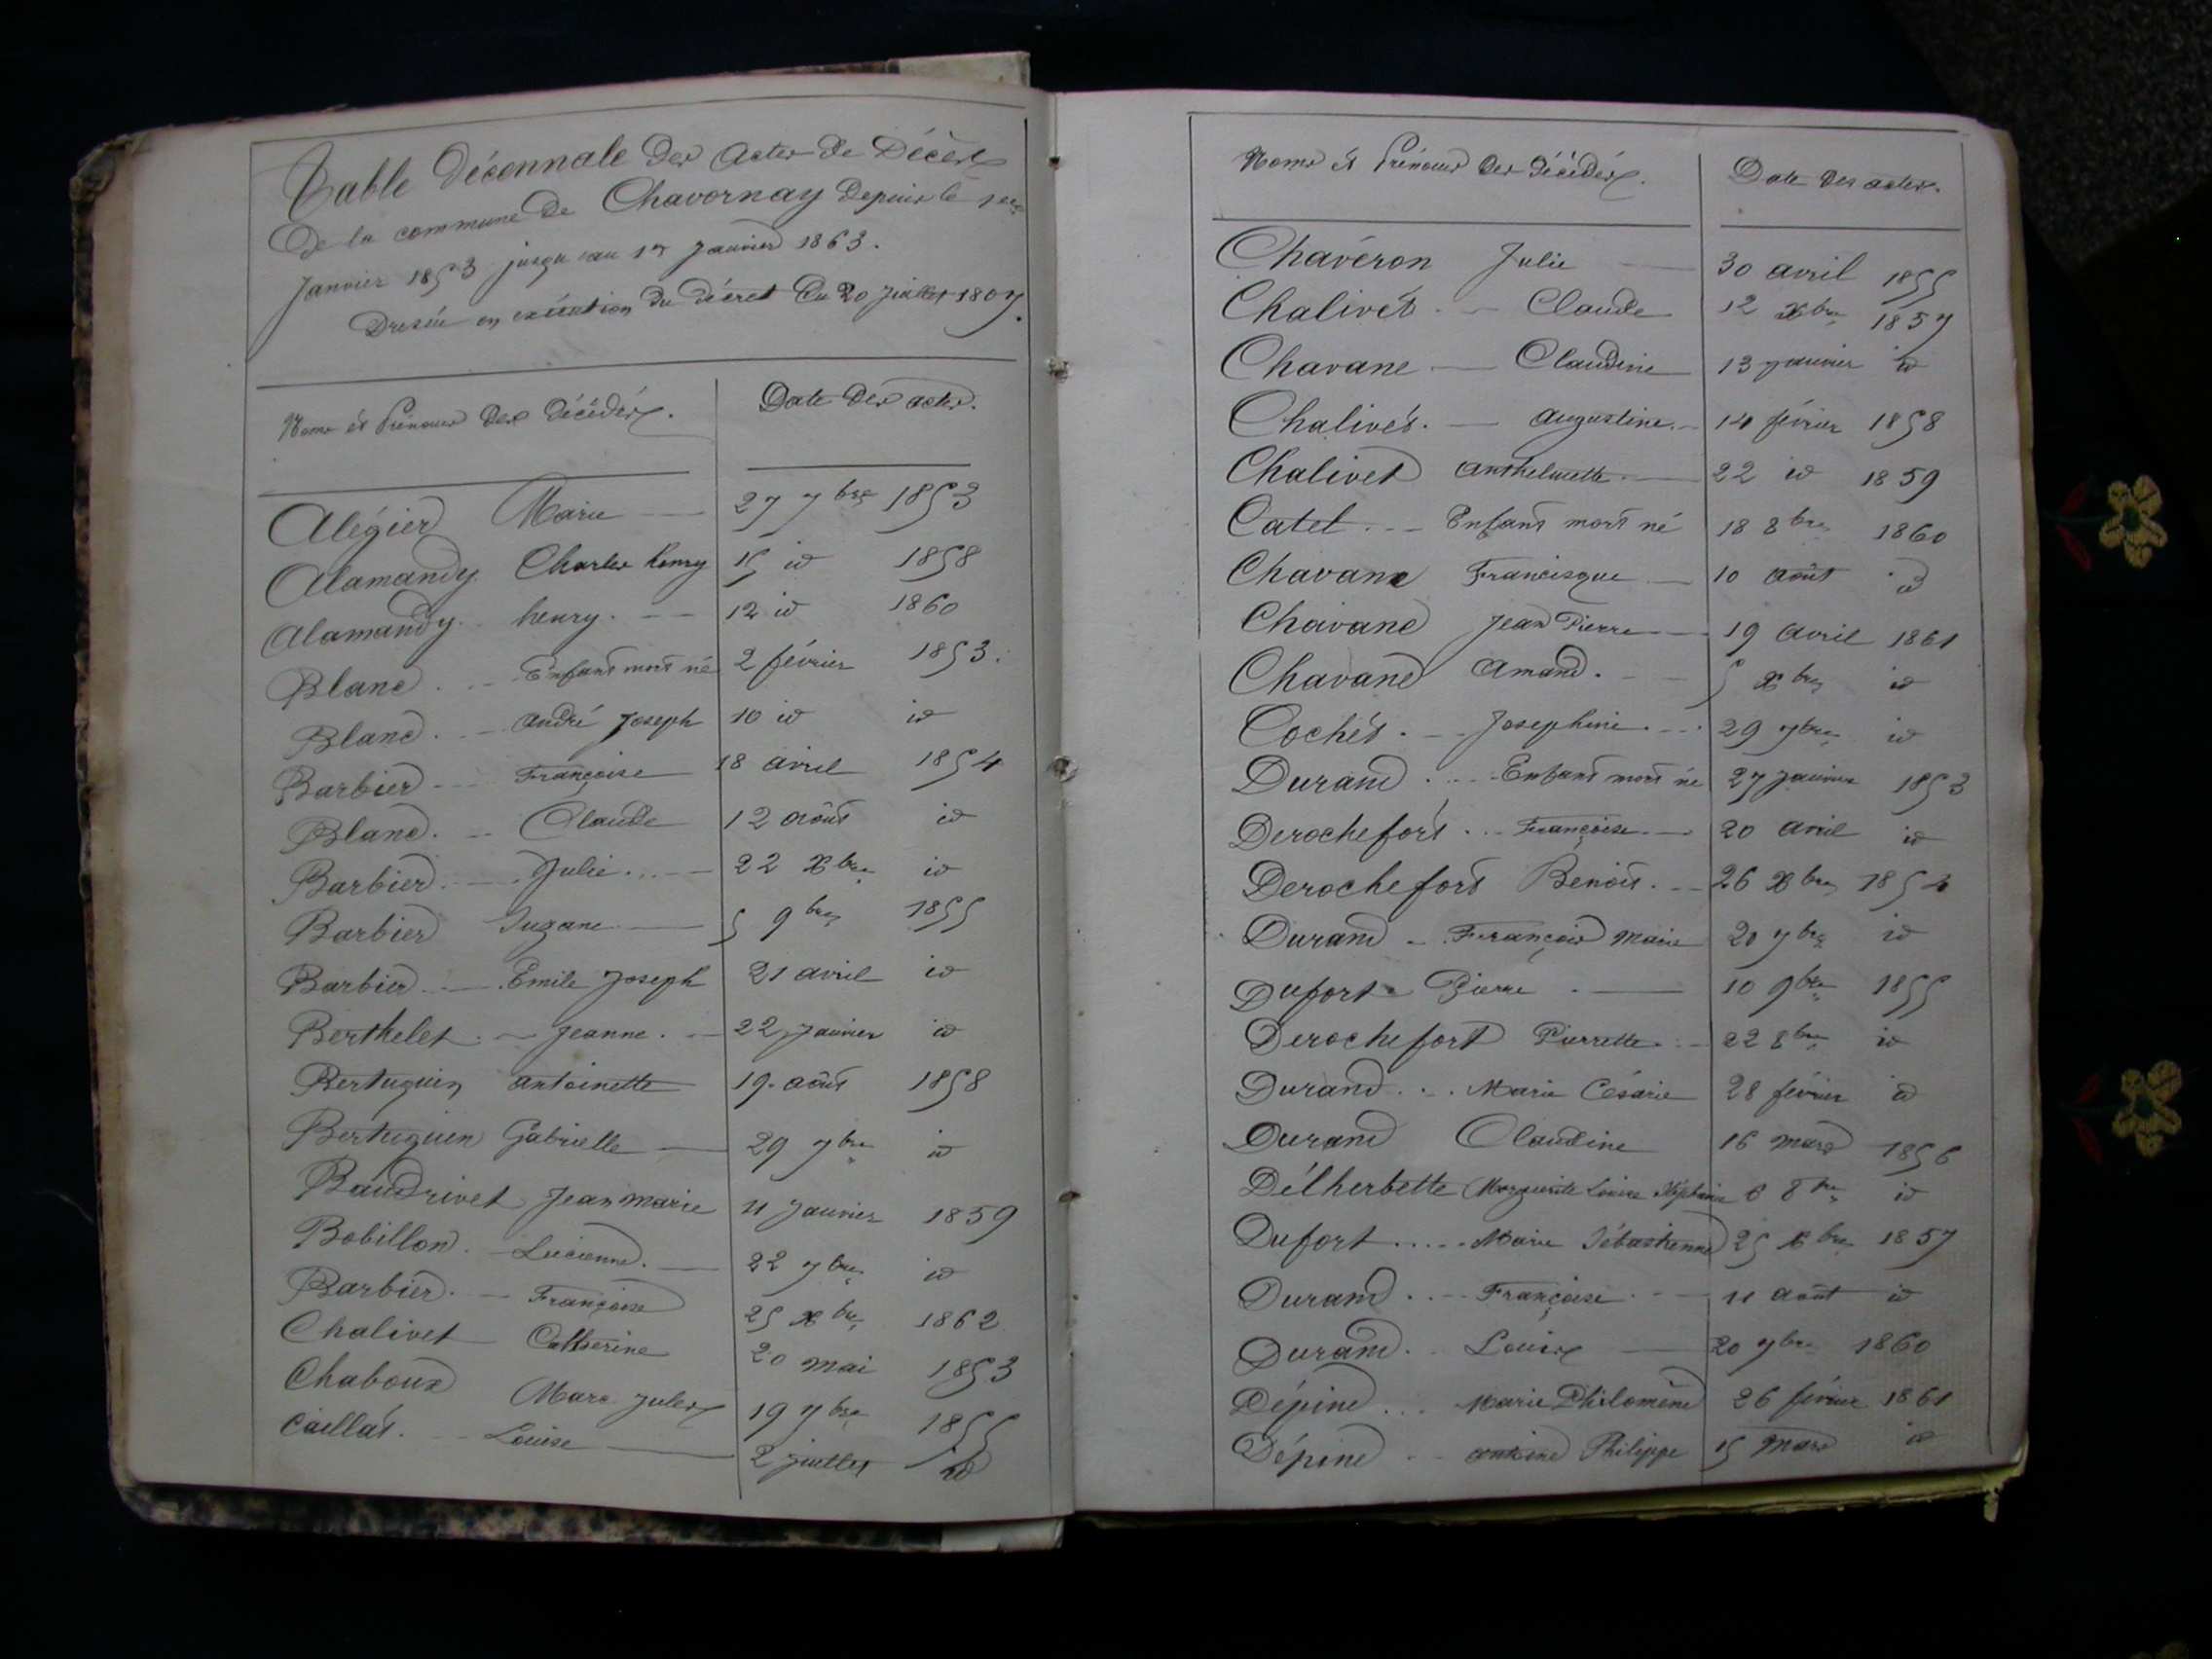 Table Décennale des Actes de Décès
De la commune de Chavornay Depuis le 1er
Janvier 1853 jusqu'au 1er Janvier 1863.
Dressée en exécution du décret du 20 Juillet 1807.
Noms et Prénoms des Décédés. Date des actes.
Alégier Marie 27 7bre 1853
Alamandy Charles henry 15 id 1858
Alamandy henry. 12 id 1860
Blanc Enfant mort né 2 février 1853.
Blanc André Joseph 10 id id
Barbier Françoise 18 avril 1854
Blanc. Claude 12 août id
Barbier. Julie 22 Xbre id
Barbier Suzane 5 9bre 1855
Barbier Emile Joseph 21 avril id
Berthelet. Jeanne. 22 janvier id
Bertuguin antoinette 19 août 1858
Bertuguin Gabrielle 29 7bre id
Baudrivet Jean marie 11 Janvier 1859
Bobillon. Lucienne. 22 7bre id
Barbier. Françoise 25 Xbre 1862
Chalivet Catherine 20 mai 1853
Chaboux Marc Jules 19 7bre 1855
Caillat. Louise 2 juillet id
Noms et Prénoms des Décédés. Date des actes.
Chavéron Julie 30 avril 1855
Chalivet Claude 12 Xbre 1857
Chavane Claudine 13 janvier id
Chalivet. Augustine 14 février 1858
Chalivet Anthelmette 22 id 1859
Catel Enfant mort né 18 8bre 1860
Chavane Francisque 10 août id
Chavane Jean Pierre 19 avril 1861
Chavane Amand. 5 Xbre id
Cochet. Josephine 29 7bre id
Durand Enfant mort né 27 janvier 1853
Derochefort Françoise 20 avril id
Derochefort Benoit. 26 Xbre 1854
Durand François marie 20 7bre id
Dufort Pierre 10 9bre 1855
Derochefort Pierrette 22 8bre id
Durand Marie Césarie 28 février id
Durand Claudine 16 mars 1856
Délherbette Marguerite Louise Stéphanie 6 8bre id
Dufort Marie Sébastienne 25 Xbre 1857
Durand Françoise 11 août id
Durand Louise 20 7bre 1860
Dépine Marie Philomène 26 février 1861
Dépine antoine Philippe 15 mars id